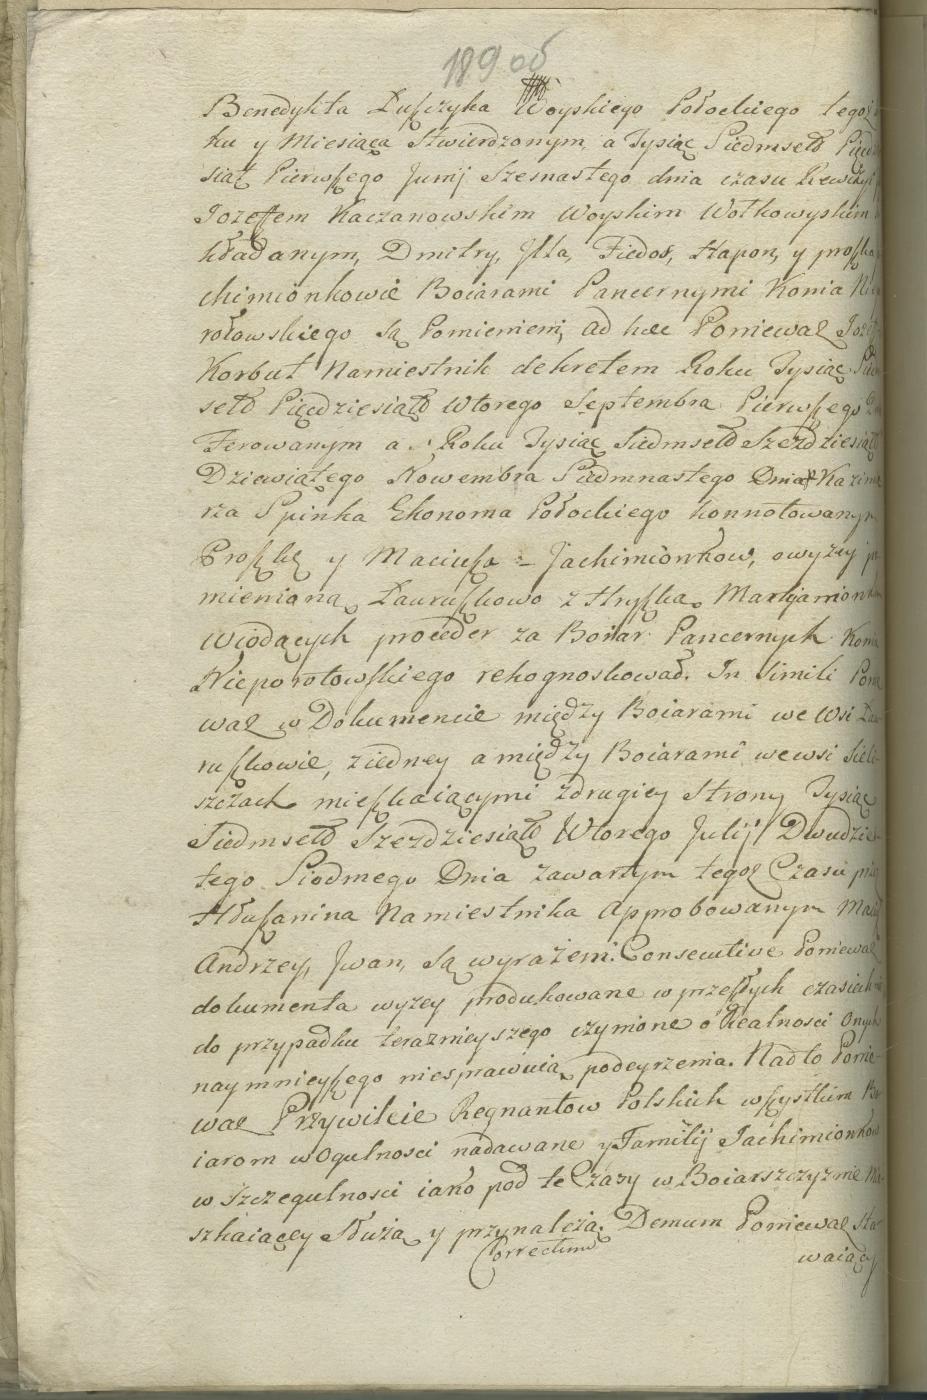 189 об
Benedykta Łuszczyka Woyskiego Połockiego tegoż
ku y Miesiąca Stwierdzonym, a Tysiąc Siedmset Pięćdzie
siąt Pierwszego Junij Szesnastego dnia czasu Rewizyi
Jozeffem Kaczanowskim Woyskim Wołkowyskim
kładanym, Dmitry, Illa, Fiedos, Hapon, y
chimionkowie Boiarami Pancernymi Konia
rołowskiego są Pomienieni, ad hæc Ponieważ Jozef
Korbut Namiestnik dekretem Roku Tysiąc
set Pięćdziesiąt Wtorego Septembra Pierwszego
Ferowanym a Roku Tysiąc Siedmset Sześdziesiąt
Dziewiątego Nowembra Siedmnastego Dnia Kazimie
rza Spinka Ekonoma Połockiego konnotowanym
Proszkę y Maciusza Jachimionkow, owyżey
mieniona Ławruszkowo z Hryszką Martjamionkow
Wiodących proceder za Boiar Pancernych Konia
Nieporotowskiego rekognoskował. In simili Ponie
waż w Dokumencie między Boiarami we Wsi Ław
ruszkowie, z iedney a między Boiarami we wsi Sieli
szczach mieszkaiącymi z drugiey Strony Tysiąc
Siedmset Szezdziesiąt Wtorego Julij Dwudzie
tego Siodmego Dnia zawartym tegoż Czasu
Hłuszanina Namiestnika Approbowanym
Andrzey, Jwan, są wyrażeni. Consecutive Ponieważ
dokumenta wyżey produkowane w przeszłych czasiech
do przypadku teraznieyszego czynione o Realnosci Onych
naymnieyszego niesprawuią podeyrzenia. Nadto Ponie
waż Przywileie Regnantow Polskich wszystkim Bo
iarom w Ogulnosci nadawane y Familij Jachimionkow
w Szczegulnosci iako pod te Czasy w Boiarszczyznie Mie
szkaiącey służą y przynależą. Demum Ponieważ sta
Correctum
waiący